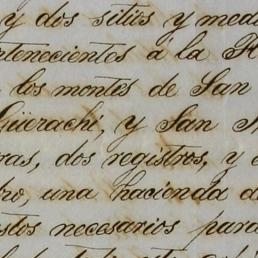 y dos sitios y med
tenecientes á la H
los montes de San
Güerachi, y San
ras, dos registros, y
ro, una hacienda d
stos necesarios para